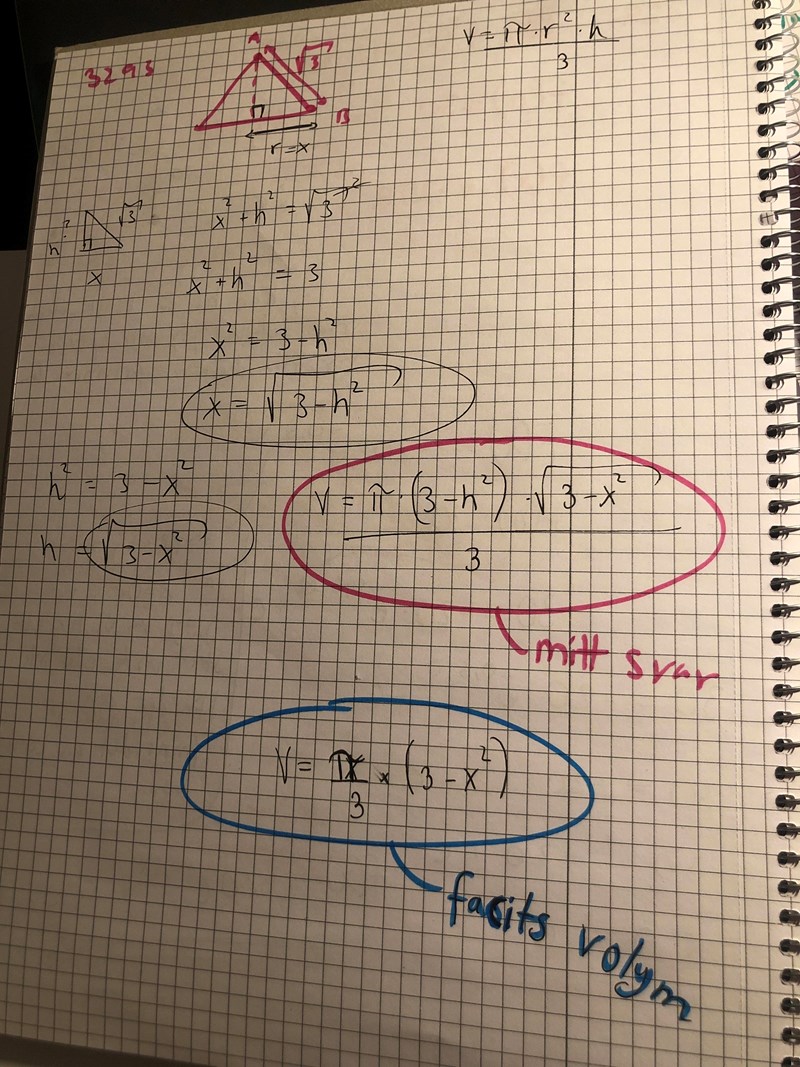 3293
A
√3
B
r=x
V = π · r² · h
3
h?
√3
x
x² + h² = √3²
x² + h² = 3
x² = 3 - h²
x = √3 - h²
h² = 3 - x²
h = √3 - x²
V = π · (3 - h²) · √3 - x²
3
mitt svar
V = πx × (3 - x²)
3
facits volym